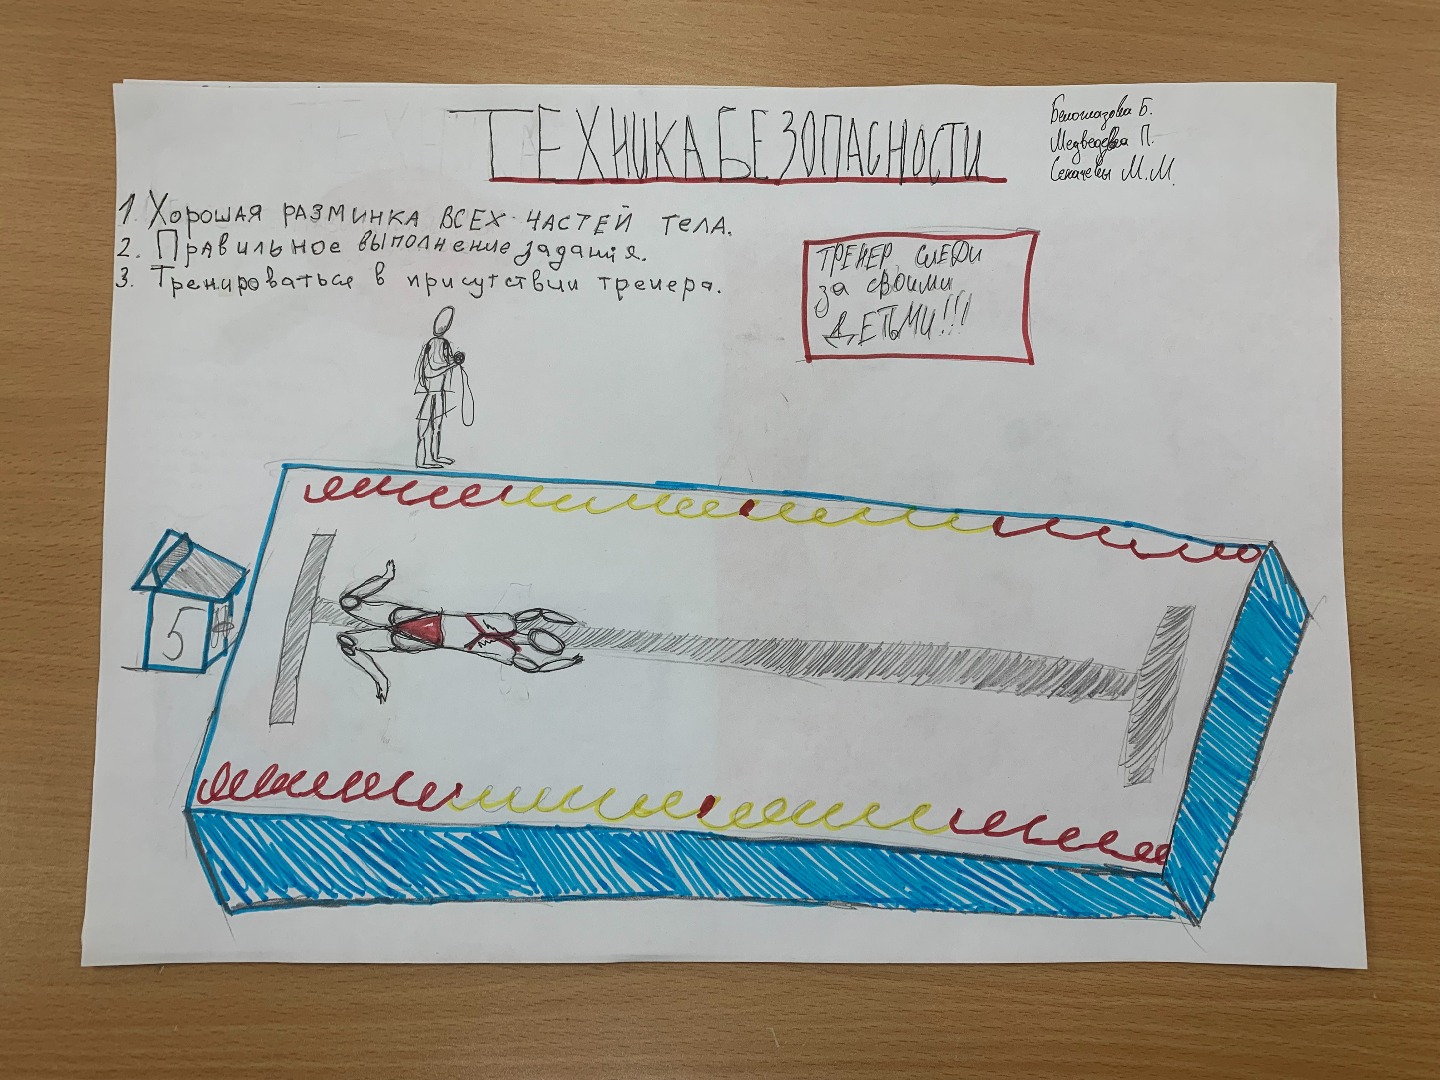 ТЕХНИКА БЕЗОПАСНОСТИ
Б.
Медведева П.
М.М.
1. Хорошая разминка всех частей тела.
2. Правильное выполнение задания.
3. Тренироваться в присутствии тренера.
ТРЕНЕР, СЛЕДИ
за своими
ДЕТЬМИ!!!
5